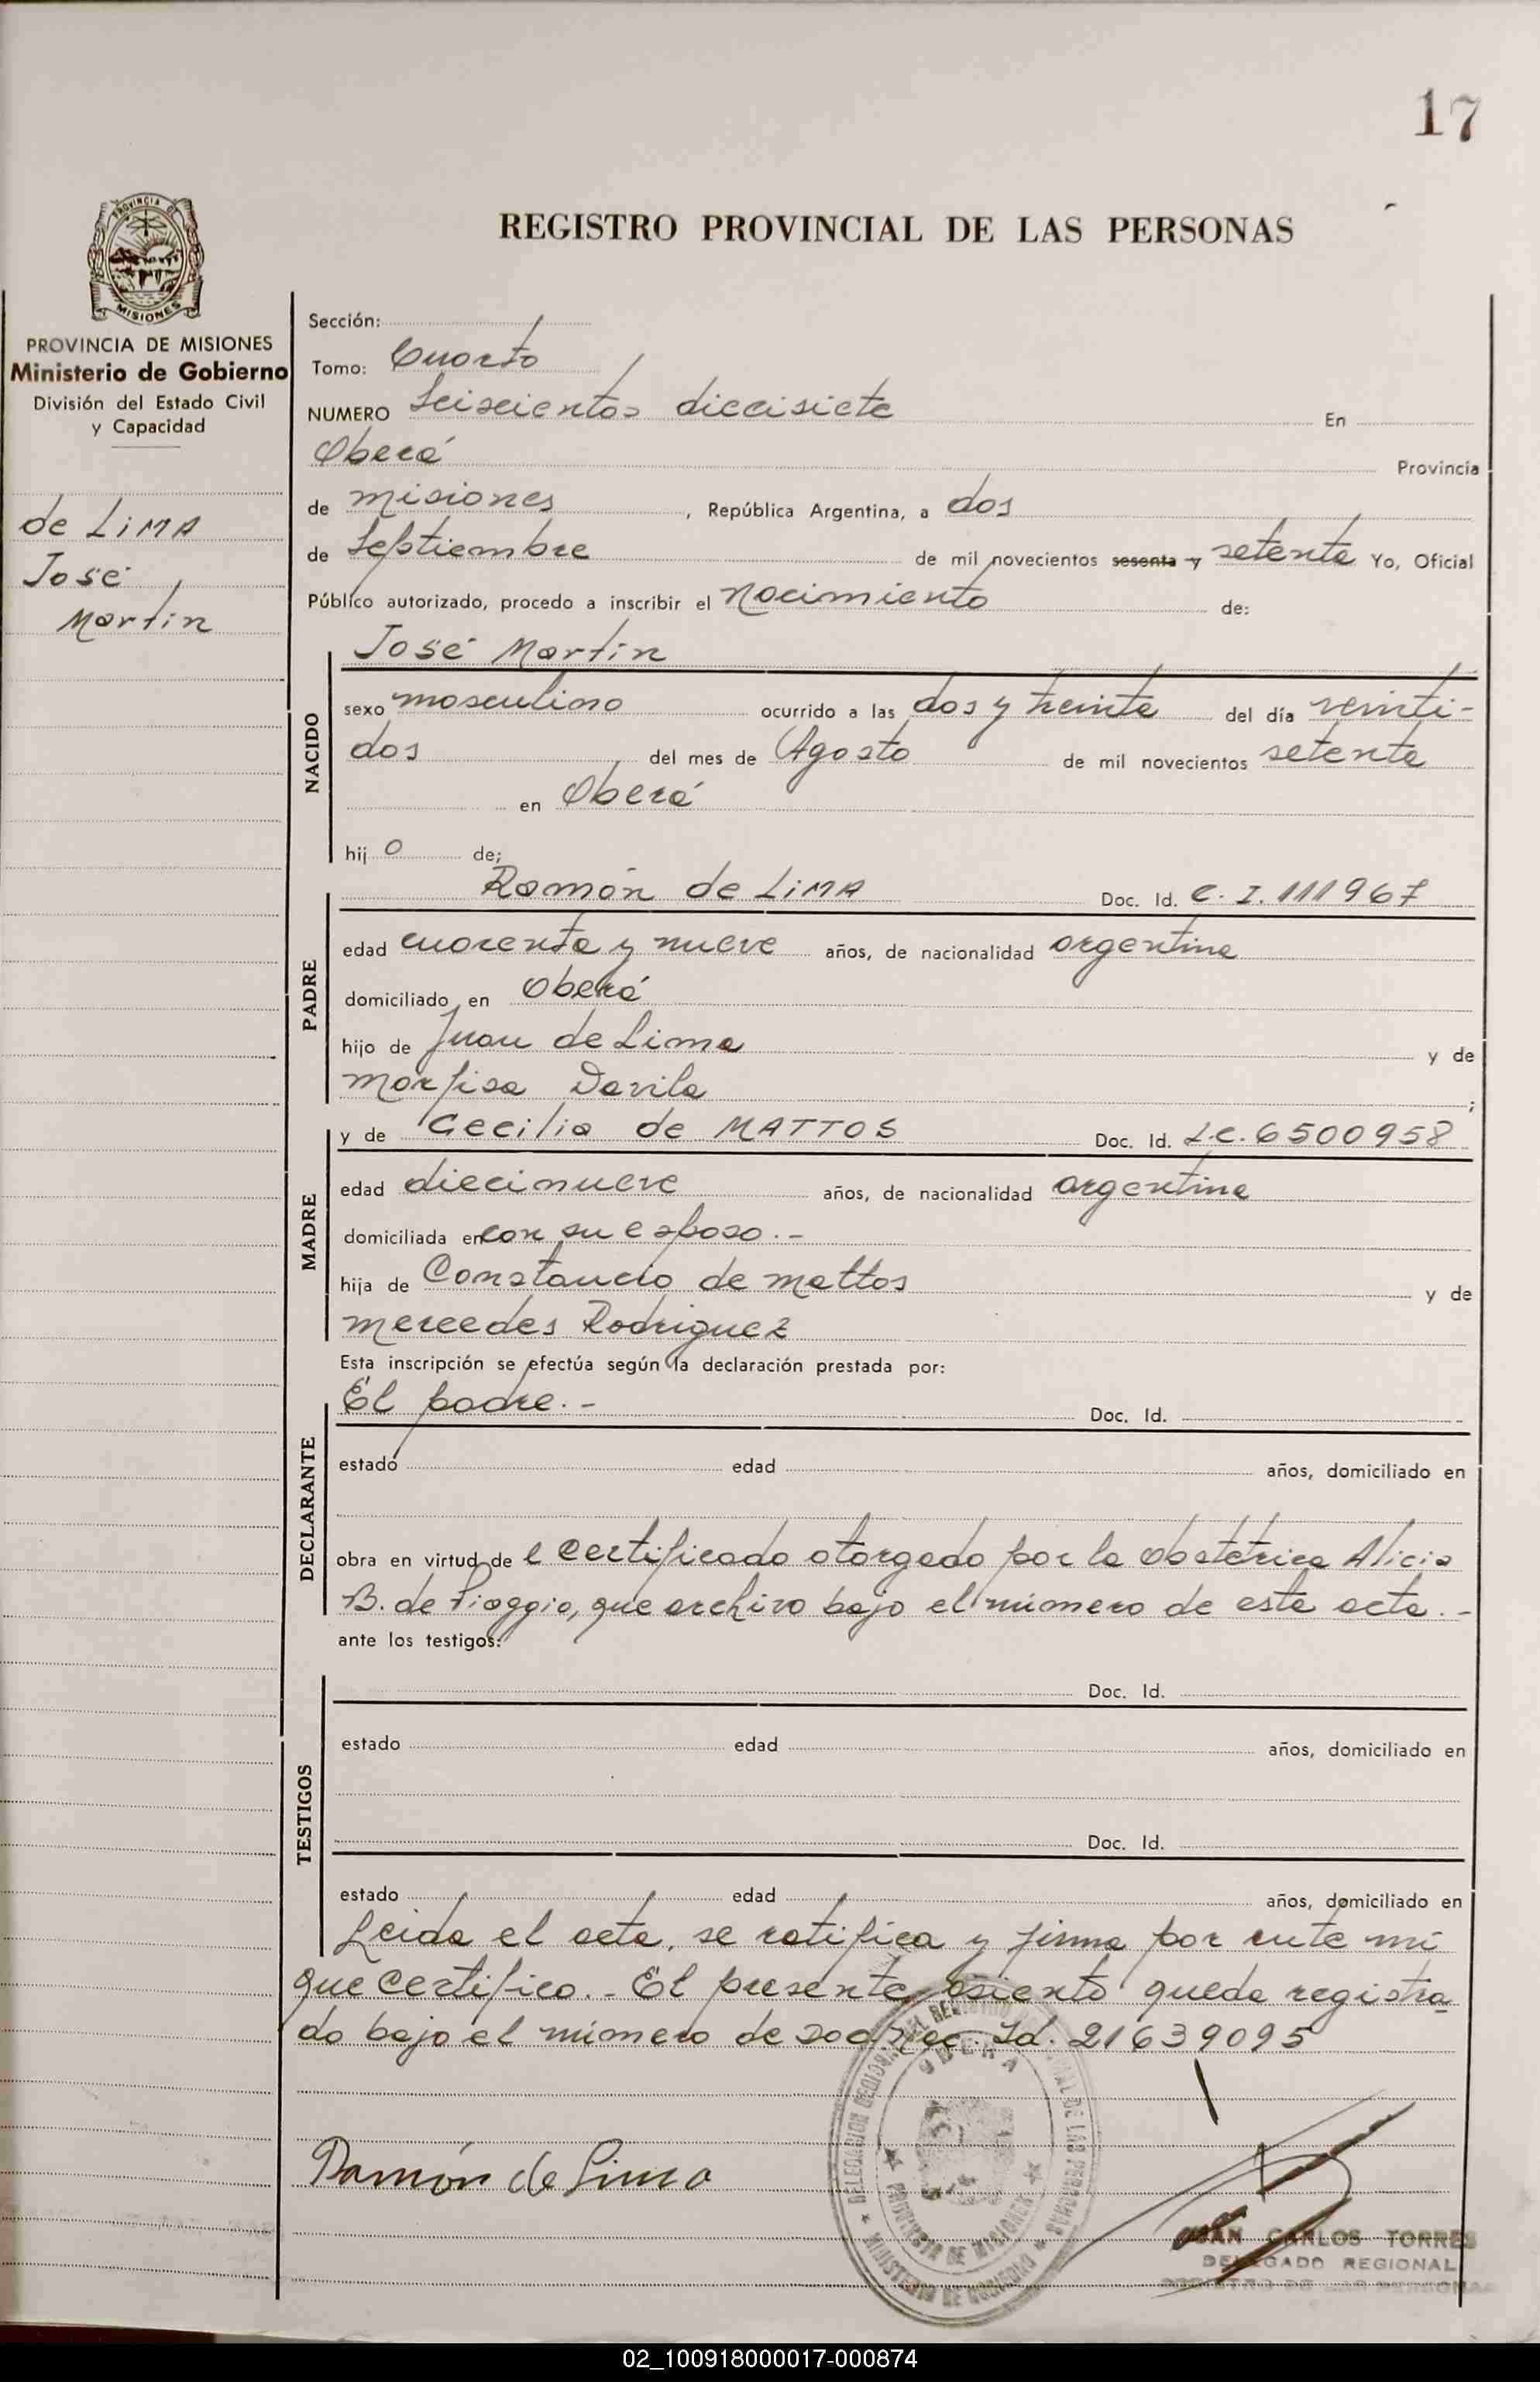 17
PROVINCIA DE
MISIONES
PROVINCIA DE MISIONES
Ministerio de Gobierno
División del Estado Civil
y Capacidad
de LiMA
José
Martín
REGISTRO PROVINCIAL DE LAS PERSONAS
Sección:
Tomo: Cuarto
NUMERO Seiscientos diecisiete En
Oberá Provincia
de misiones, República Argentina, a dos
de Septiembre de mil novecientos sesenta y setenta Yo, Oficial
Público autorizado, procedo a inscribir el nacimiento de:
José Martín
NACIDO
sexo masculino ocurrido a las dos y treinta del día veinti-
dos del mes de Agosto de mil novecientos setenta
en Oberá
hijo de;
Ramón de LiMA Doc. Id. C. I. 111967
PADRE
edad cuarenta y nueve años, de nacionalidad argentina
domiciliado en Oberá
hijo de Juan de Lima y de
Marfisa Davila;
y de Cecilia de MATTOS Doc. Id. L.C. 6500958
MADRE
edad diecinueve años, de nacionalidad argentina
domiciliada en con su esposo.-
hija de Constancio de mattos y de
mercedes Rodriguez
Esta inscripción se efectúa según la declaración prestada por:
El padre.- Doc. Id.
DECLARANTE
estado edad años, domiciliado en
obra en virtud de l certificado otorgado por la obstétrica Alicia
B. de Piaggio, que archivo bajo el número de esta acta.-
ante los testigos:
Doc. Id.
TESTIGOS
estado edad años, domiciliado en
Doc. Id.
estado edad años, domiciliado en
Leida el acta, se ratifica y firma por ante mi
que certifico.- El presente asiento queda registra
do bajo el número de Id. 21639095
OBERA
PROVINCIA DE MISIONES
MINISTERIO DE GOBIERNO
Ramón de Lima
JUAN CARLOS TORRES
DELEGADO REGIONAL
REGISTRO DE LAS PERSONAS
02_100918000017-000874